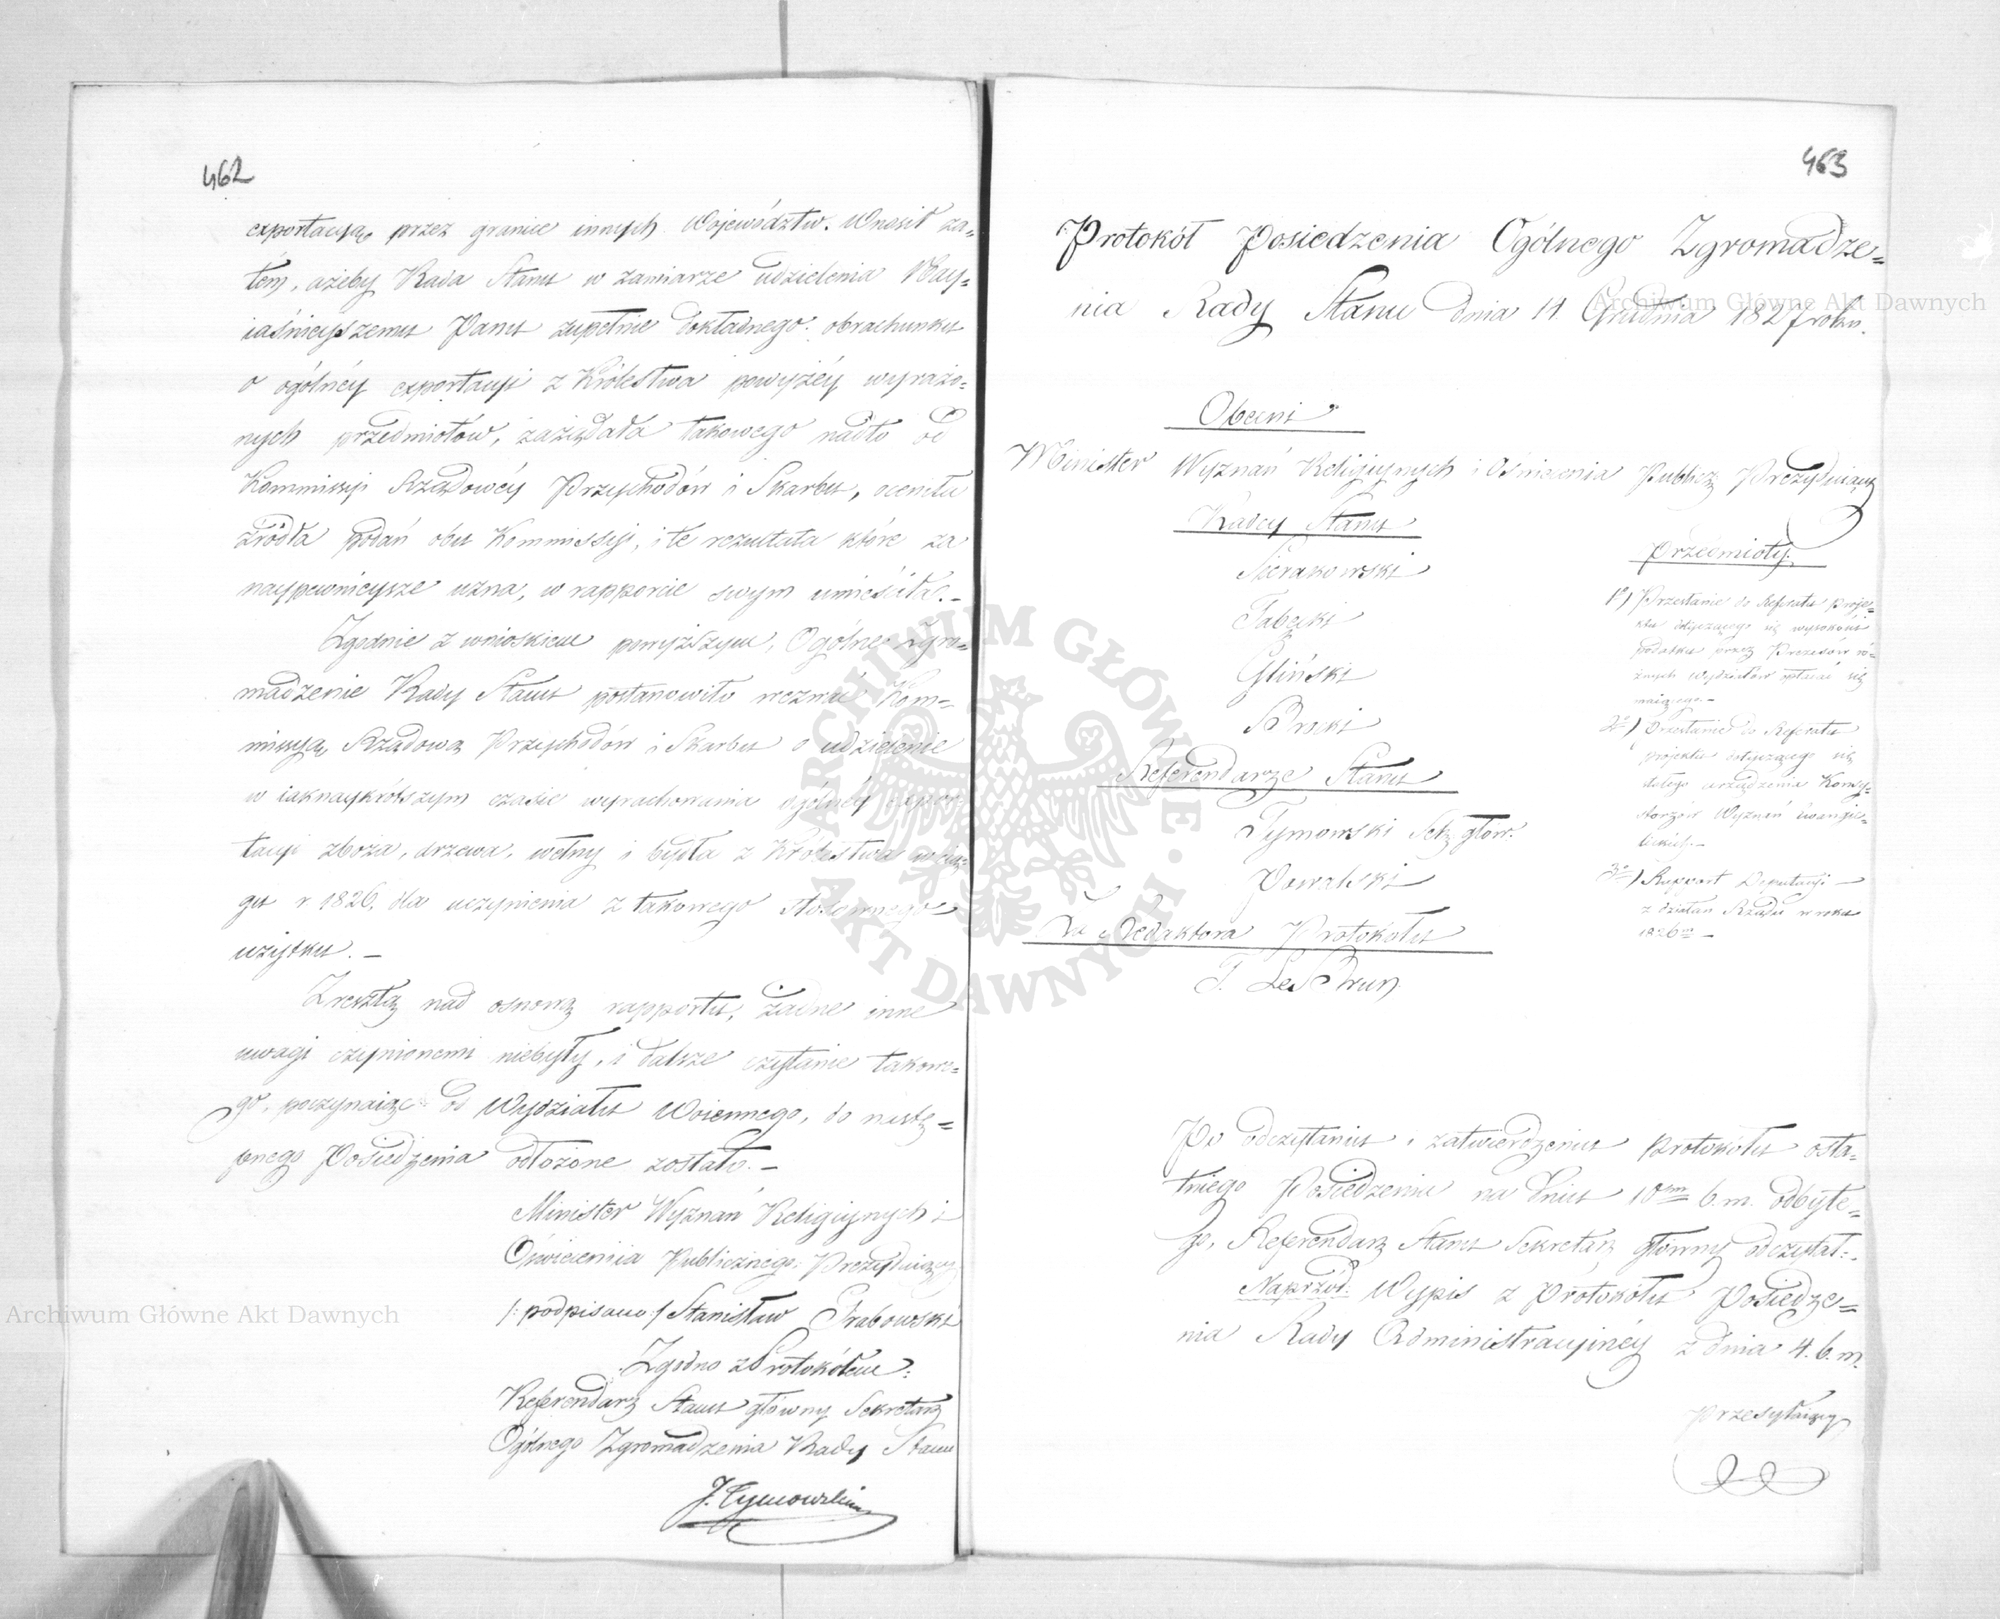 462
exportacyą przez granice innych Województw. Wnosił za=
tém, ażeby Rada Stanu w zamiarze udzielenia Nay=
iaśnieyszemu Panu zupełnie dokładnego obrachunku
o ogólnéy exportacyi z Królestwa powyżéy wyrażo=
nych przedmiotów, zażądała takowego nadto od
Kommissyi Rządowéy Przychodów i Skarbu, oceniła
źródła podań obu Kommissyi, i te rezultata które za
naypewnieysze uzna, w rapporcie swym umieściła. –
Zgodnie z wnioskiem powyższym, Ogólne Zgro=
madzenie Rady Stanu postanowiło wezwać Kom=
missyą Rządową Przychodów i Skarbu o udzielenie
w iaknaykrótszym czasie wyrachowania ogólnéy expor=
tacyi zboża, drzewa, wełny i bydła z Królestwa w cią=
gu r 1826. dla uczynienia z takowego stosownego
użytku. –
Zresztą nad osnową rapportu, żadne inne
uwagi czynionemi niebyły, i dalsze czytanie takowe=
go, poczynaiąc od Wydziału Woiennego, do nastę=
pnego Posiedzenia odłożone zostało. –
Minister Wyznań Religiynych i
Oświecenia Publicznego Prezyduiący
/: podpisano :/ Stanisław Grabowski
Zgodno z Protokółem:
Referendarz Stanu główny Sekretarz
Ogólnego Zgromadzenia Rady Stanu
J. Tymowski
463
Protokół Posiedzenia Ogólnego Zgromadze=
nia Rady Stanu dnia 11 Grudnia 1827 roku.
Obecni
Minister Wyznań Religiynych i Oświecenia Publicz Prezyduiący
Radcy Stanu
Sierakowski
Tabęcki
Gliński
Brocki
Referendarze Stanu
Tymowski Sek. głów.
Powalski
Za Redaktora Protokółu
T. Le Brun
Przedmioty.
1º) Przesłanie do Referatu proje=
ktu tyczącego się wysokości
podatku przez Prezesów ró=
żnych Wydziałów opłacać się
maiącego. –
2º) Przesłanie do Referatu
projektu tyczącego się
stałego urządzenia Konsy=
storzów Wyznań Ewangie=
lickich. –
3º) Rapport Deputacyi –
z działań Rządu w roku
1826m –
Po odczytaniu i zatwierdzeniu Protokółu osta=
tniego Posiedzenia na dniu 10tym b. m. odbyte=
go, Referendarz Stanu Sekretarz główny odczytał:
Naprzód: Wypis z Protokółu Posiedze=
nia Rady Administracyinéy z dnia 4. b. m.
przesyłaiący
Archiwum Główne Akt Dawnych
Archiwum Główne Akt Dawnych
ARCHIWUM GŁÓWNE AKT DAWNYCH